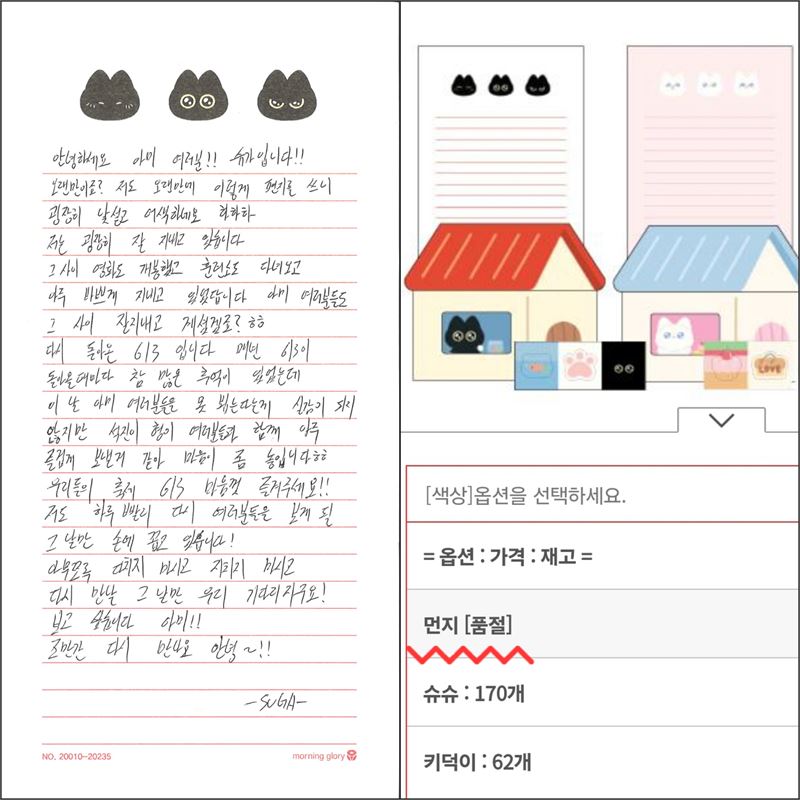 안녕하세요 아미 여러분!! 슈가입니다!!
오랜만이죠? 저도 오랜만에 이렇게 편지를 쓰니
굉장히 낯설고 어색하네요 하하하
저는 굉장히 잘 지내고 있습니다
그 사이 영화도 개봉했고 훈련소도 다녀오고
아주 바쁘게 지내고 있었답니다 아미 여러분들도
그 사이 잘지내고 계셨겠죠? ㅎㅎ
다시 돌아온 6/3 입니다 매년 6/3이
돌아올때마다 참 많은 추억이 있었는데
이 날 아미 여러분들을 못 뵙는다는게 실감이 되지
않지만 석진이 형이 여러분들과 함께 아주
즐겁게 보낸거 같아 마음이 좀 놓입니다ㅎㅎ
우리들의 축제 6/3 마음껏 즐겨주세요!!
저도 하루 빨리 다시 여러분들을 보게 될
그 날만 손에 꼽고 있습니다!
아무쪼록 다치지 마시고 지치지 마시고
다시 만날 그 날만 우리 기다리자구요!
보고 싶습니다 아미!!
조만간 다시 만나요 안녕~!!
-SUGA-
NO. 20010-20235
morning glory
LOVE
[색상]옵션을 선택하세요.
= 옵션 : 가격 : 재고 =
먼지 [품절]
슈슈 : 170개
키덕이 : 62개